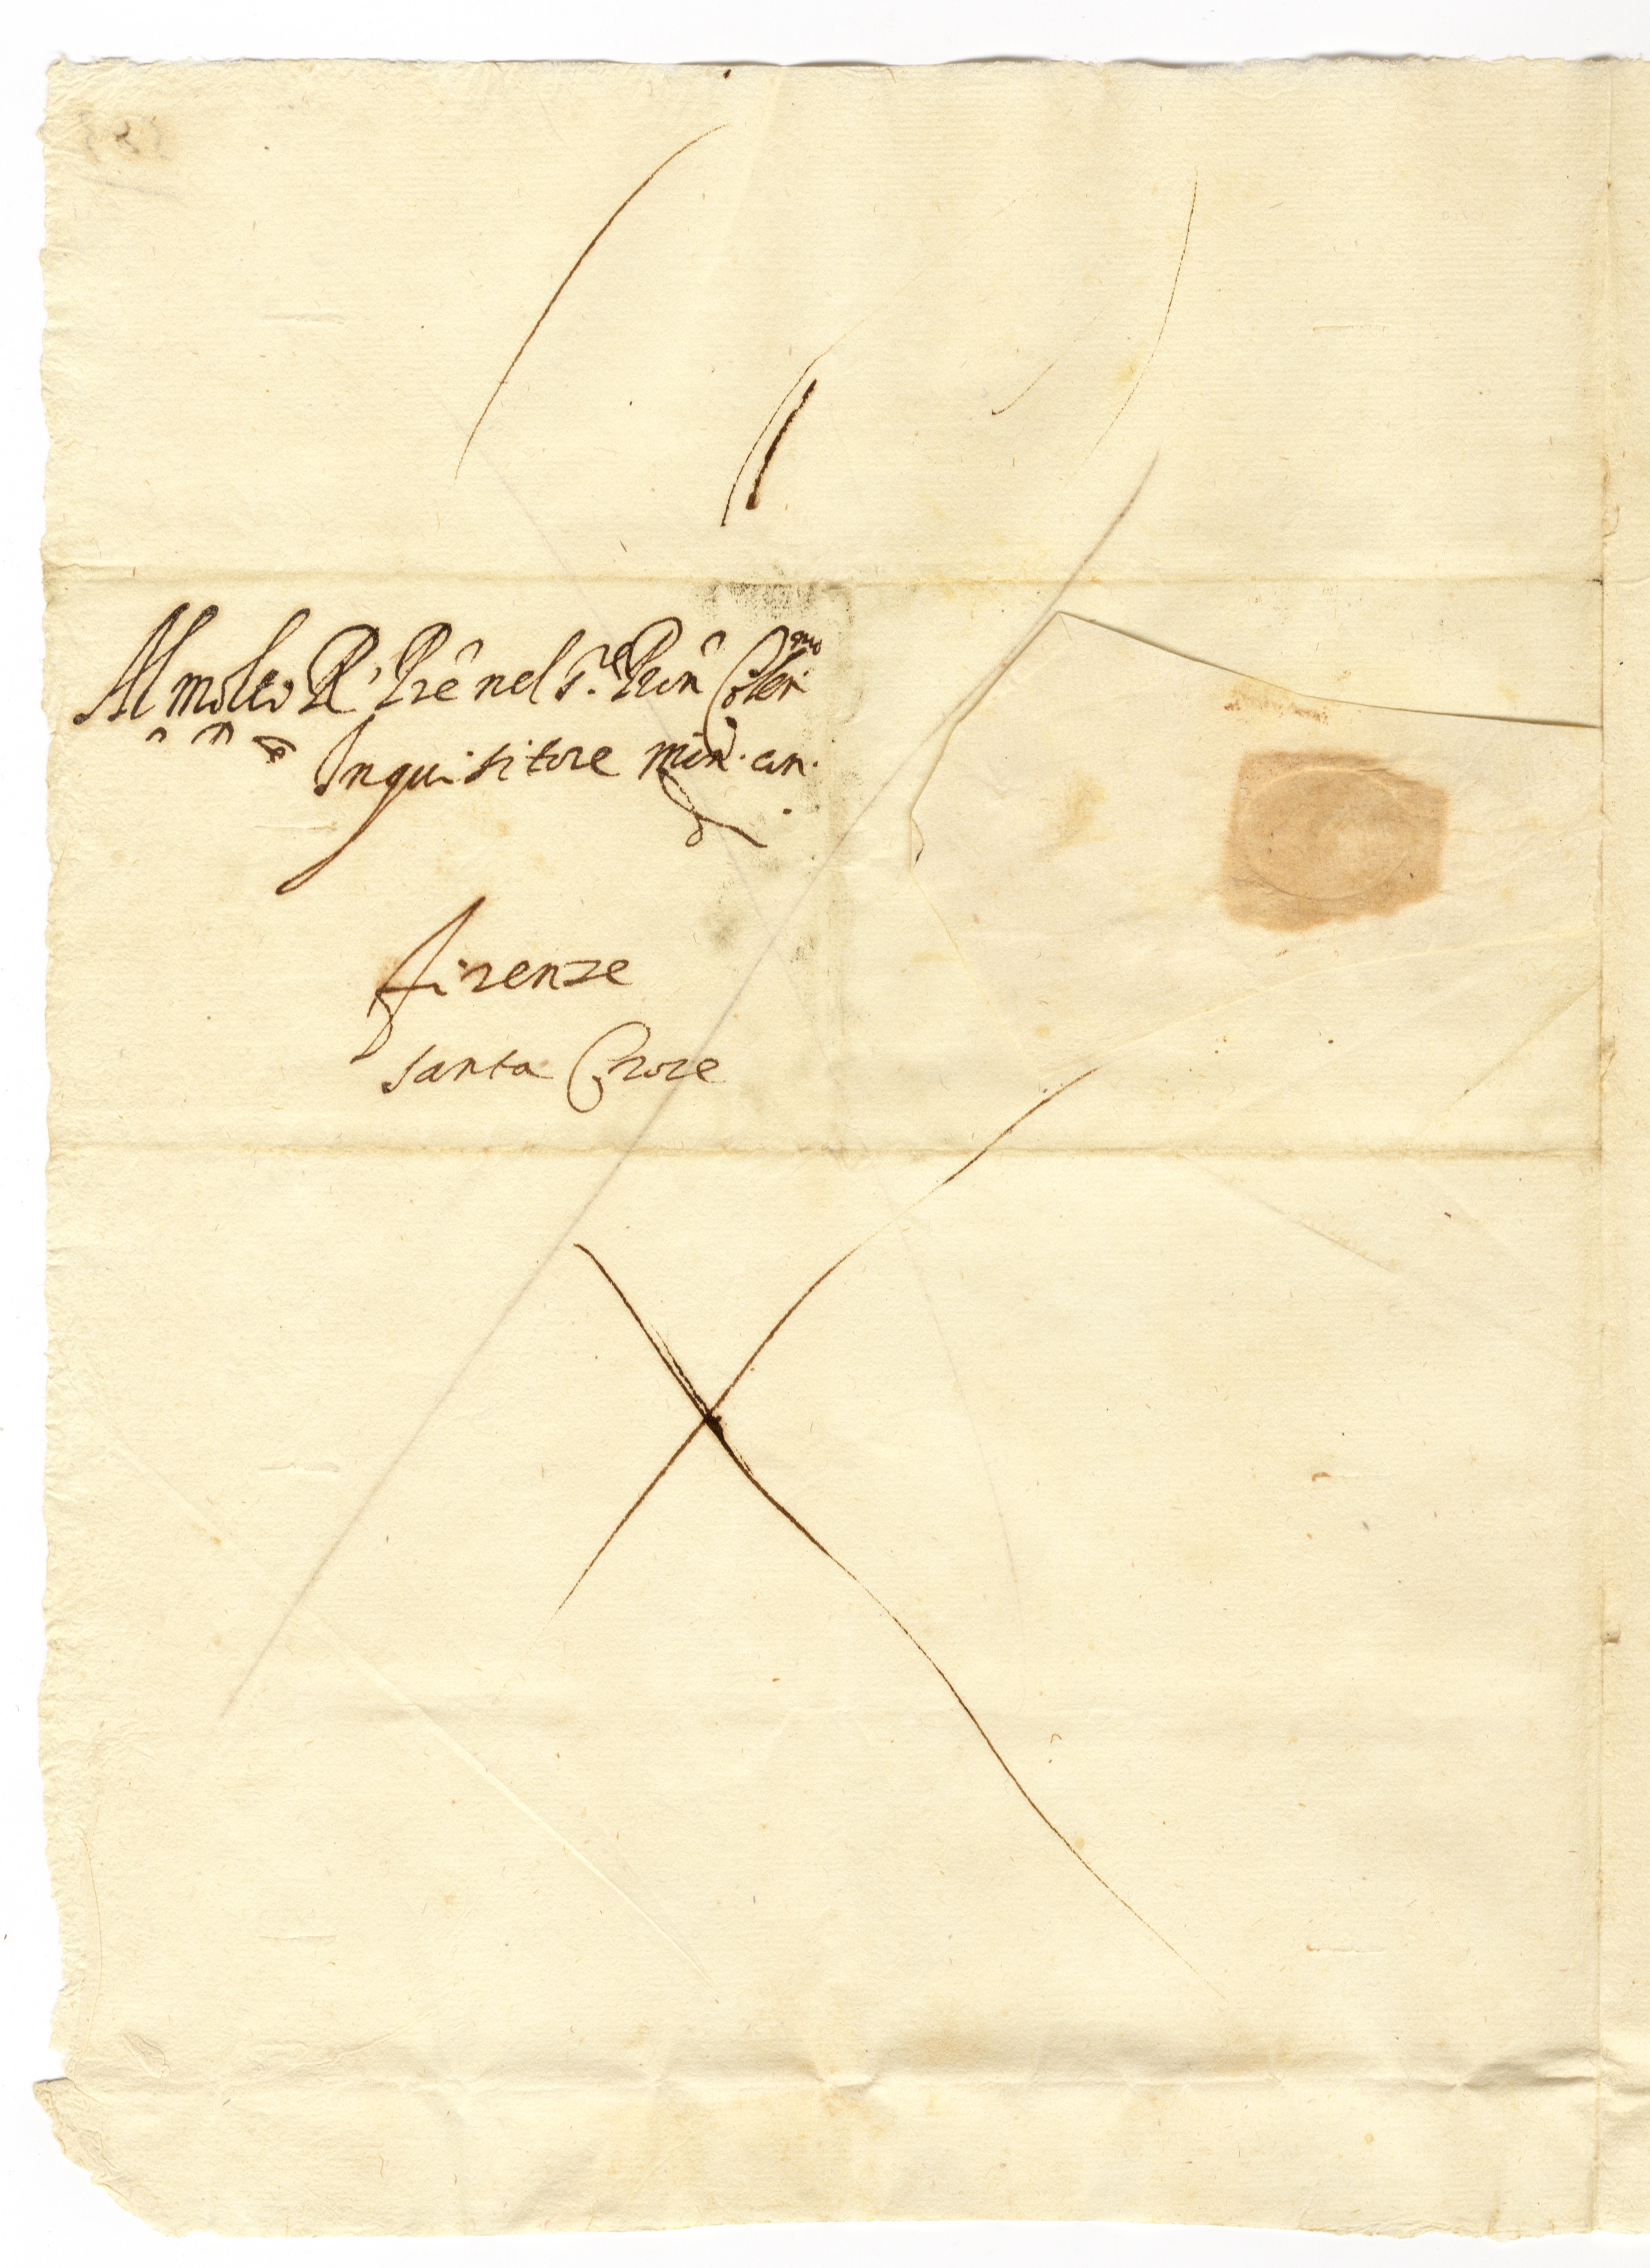 Al molto R. Prê nel S.re Prōn Colen.mo
Inquisitore min. con.
firenze
santa Croce